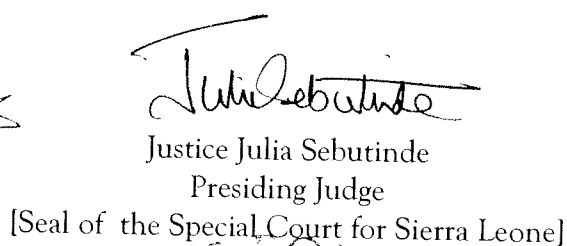 Julia Sebutinde
Justice Julia Sebutinde
Presiding Judge
[Seal of the Special Court for Sierra Leone]